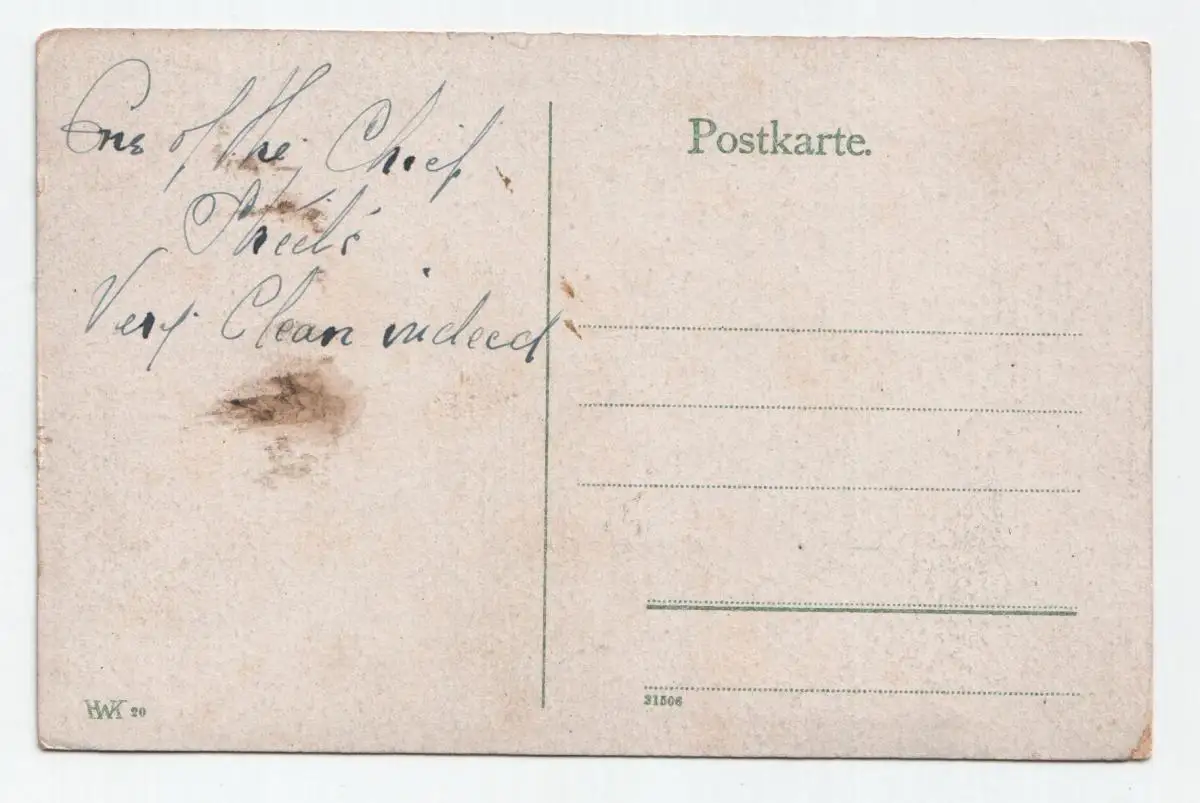 One of the Chief
Streets
Very Clean indeed
Postkarte.
HWK 20
31506